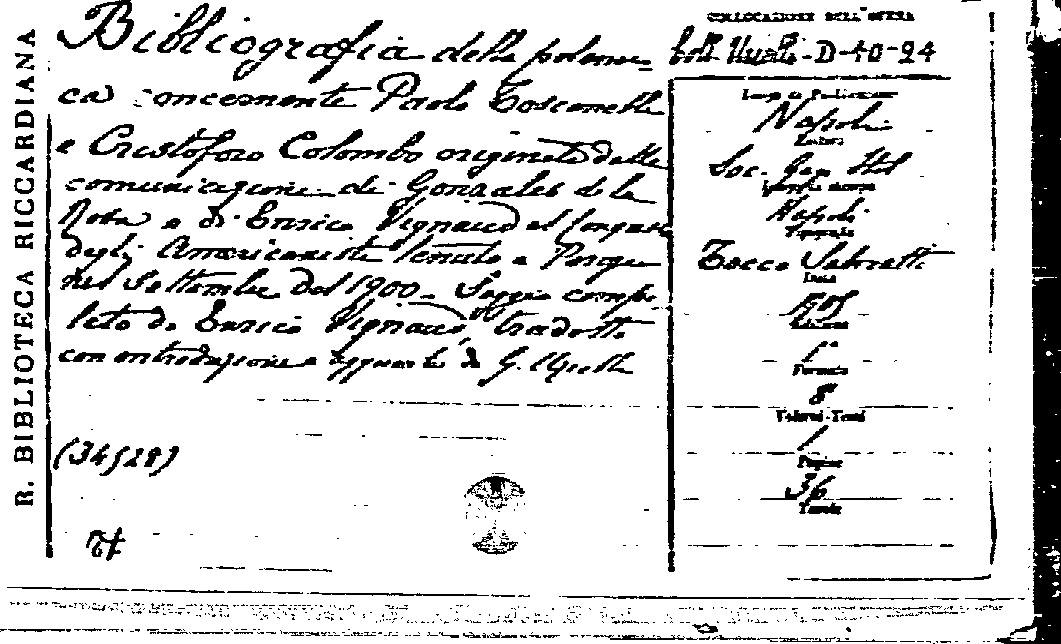 R. BIBLIOTECA RICCARDIANA
Bibliografia della polemi-
ca concernente Paolo Toscanelli
e Cristoforo Colombo originata dalla
comunicazione di Gonzales de la
Rosa e di Enrico Vignaud al Congresso
degli Americanisti tenuto a Parigi
nel Settembre del 1900. Saggio comp-
leto di Enrico Vignaud, tradotto
con introduzione e aggiunte di G. Uzielli
(34528)
COLLOCAZIONE DELL'OPERA
Coll. Uzielli-D-40-24
Luogo di Pubblicazione
Napoli
Soc. Geo
Napoli
Tipografia
Tocco Salvietti
Data
1905
Edizione
1ª
Formato
8°
Volumi-Tomi
1
Pagine
36
Tavole